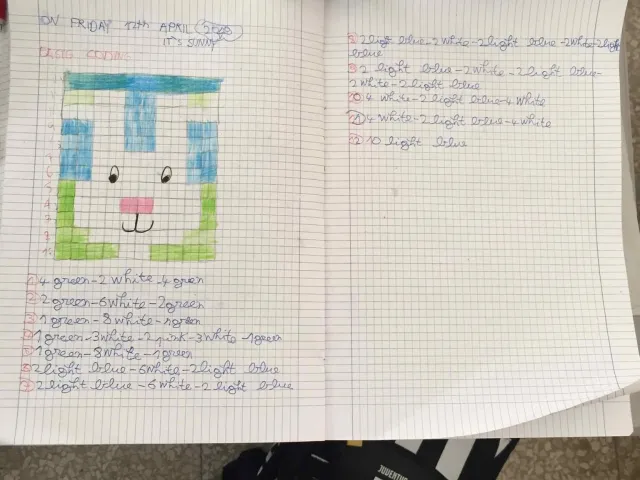 ON FRIDAY 12th APRIL
IT'S SUNNY
① 4 green-2 white-4 green
② 2 green-6 white-2 green
③ 1 green-8 white-1 green
④ 1 green-3 white-2 pink-3 white-1 green
⑤ 1 green-8 white-1 green
⑥ 2 light blue-6 white-2 light blue
⑦ 2 light blue-6 white-2 light blue
⑧ 2 light blue-2 white-2 light blue-2 white-2 light
blue
⑨ 2 light blue-2 white-2 light blue-
2 white-2 light blue
⑩ 4 white-2 light blue-4 white
⑪ 4 white-2 light blue-4 white
⑫ 10 light blue
JUVENTUS